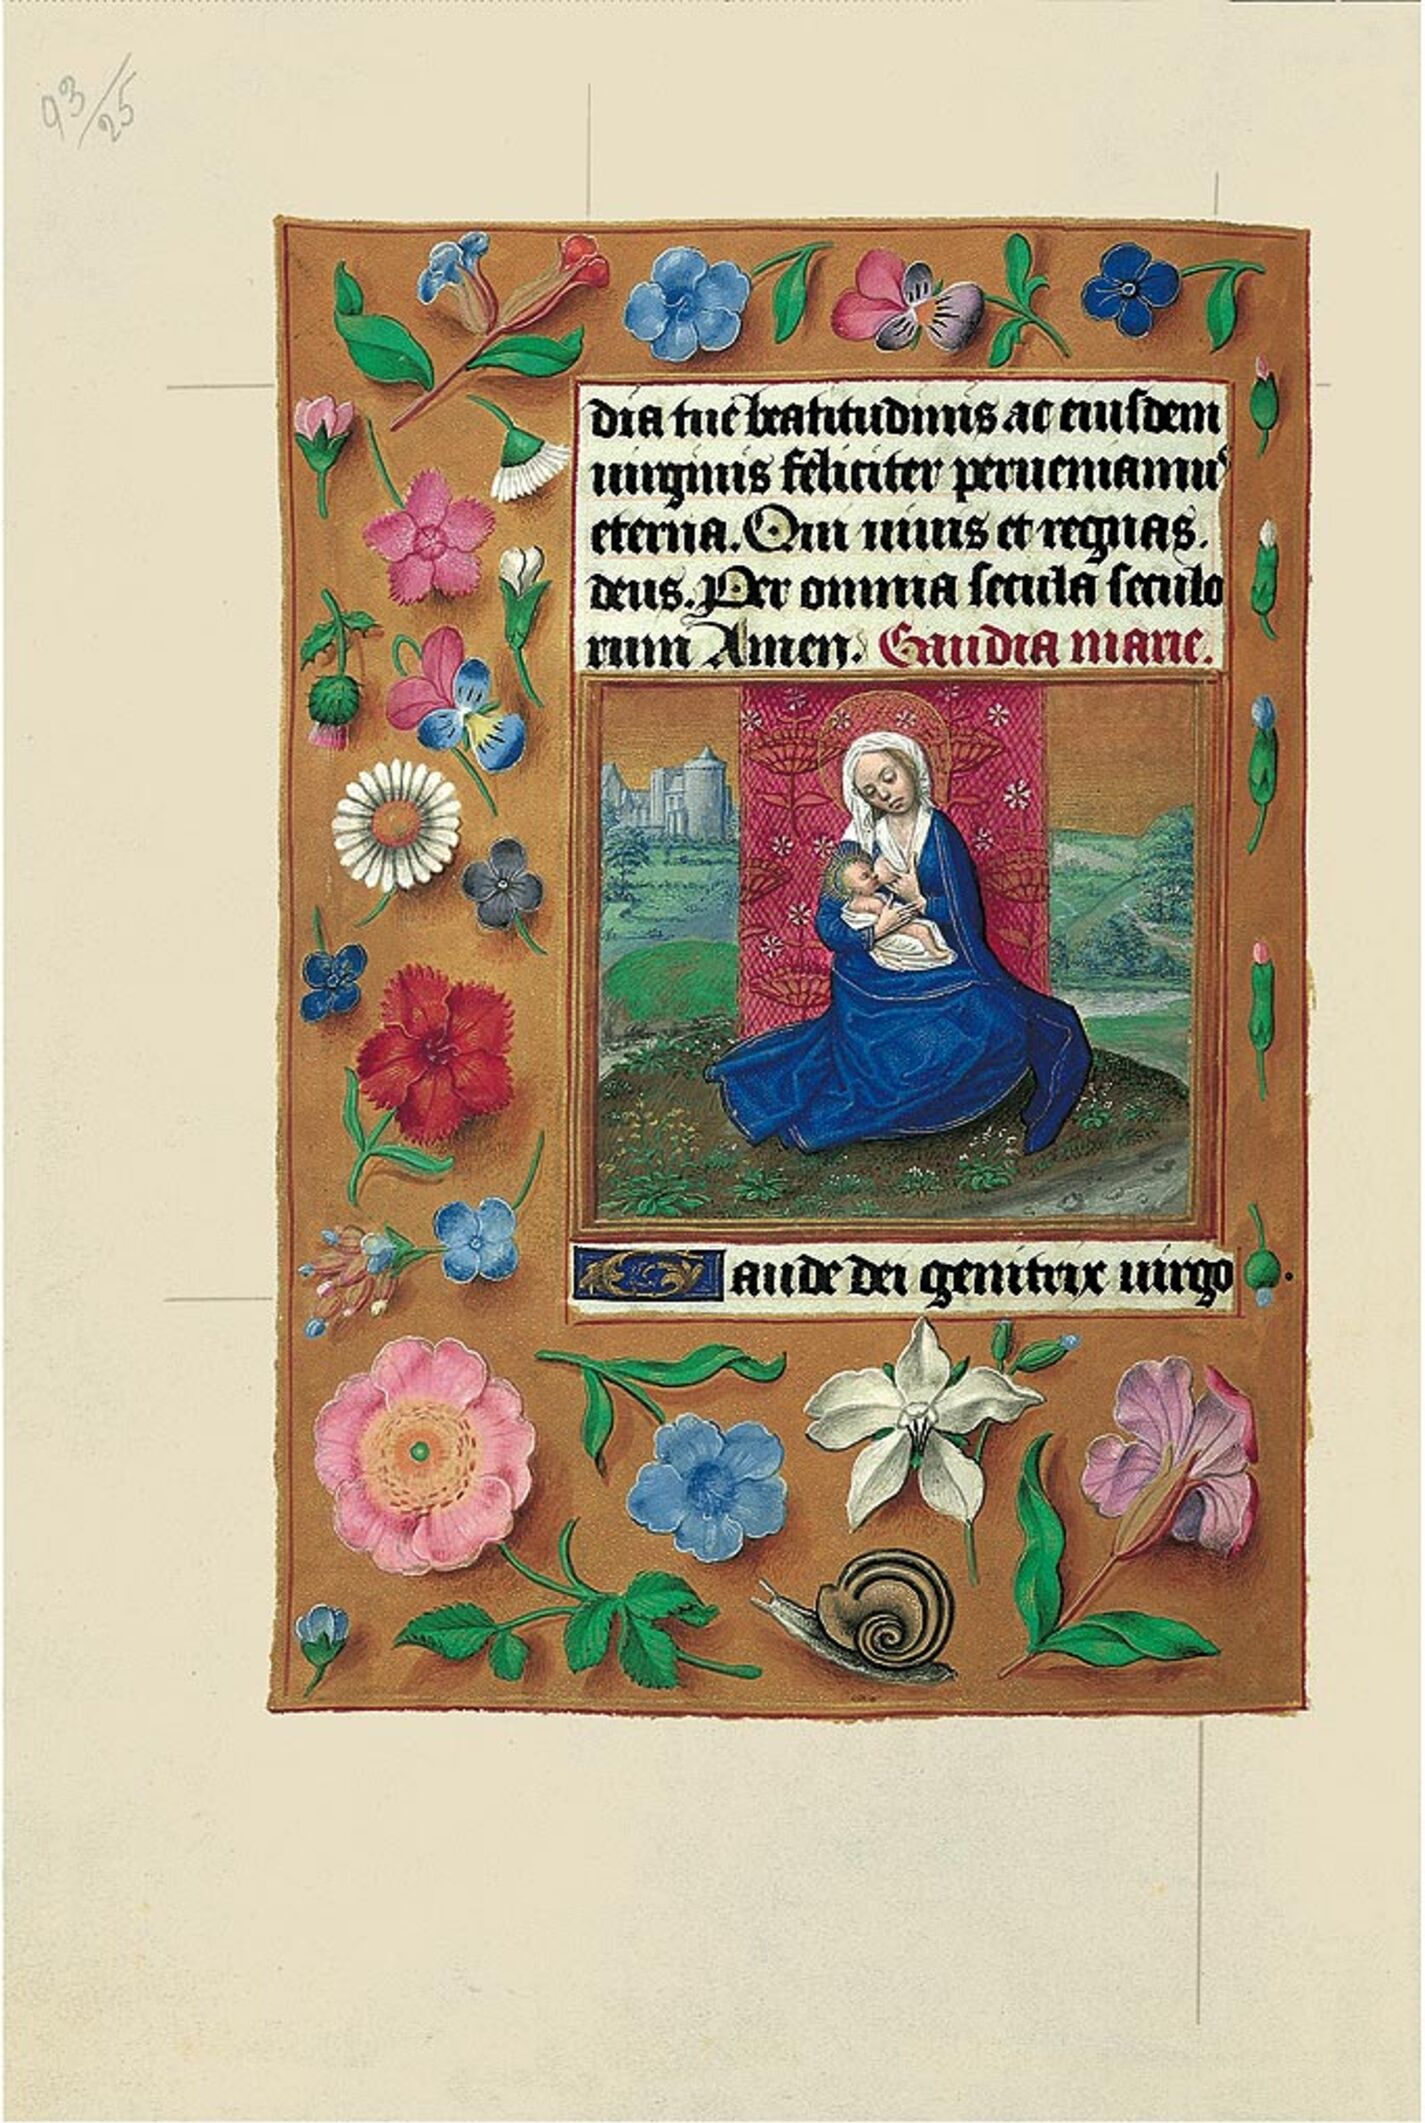 93/25
dia tue beatitudinis ac eiusdem
uirginis feliciter perueniamus
eterna. Qui uiuis et regnas.
deus. Per omnia secula seculo
rum Amen. Gaudia marie.
Gaude dei genitrix uirgo